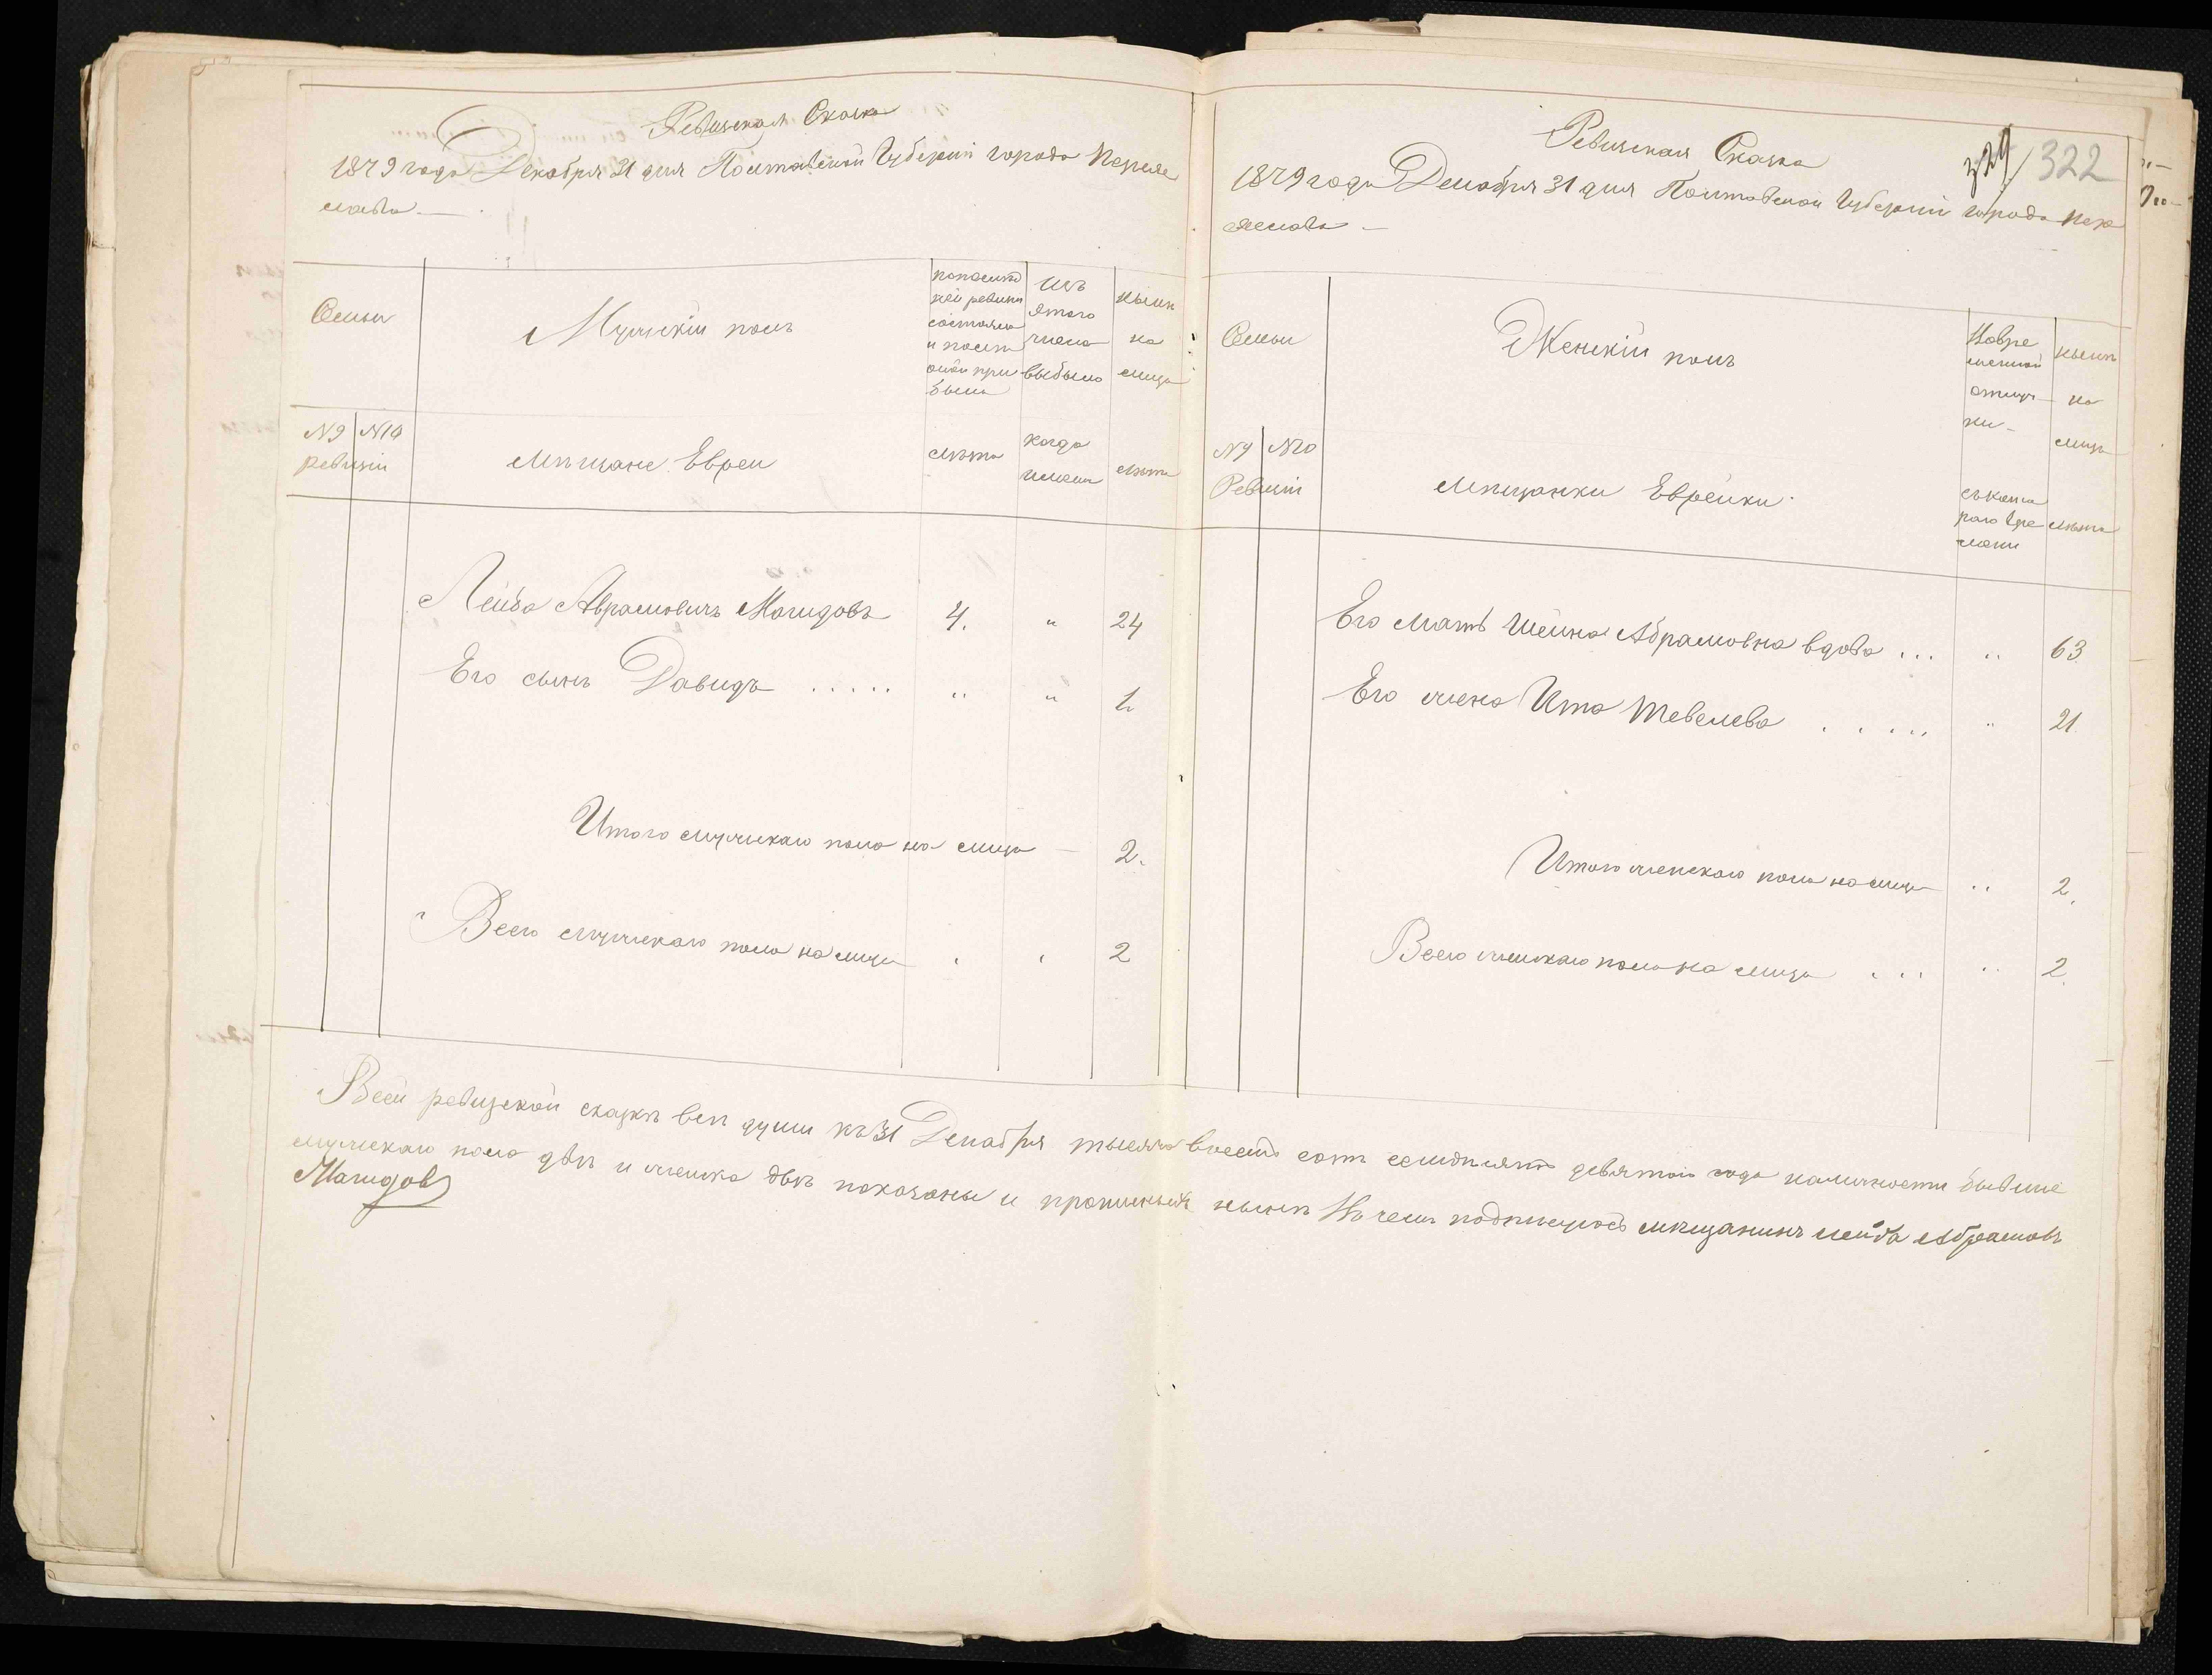 Ревизская Сказка
1879 года Декабря 31 дня Полтавской Губернии города Переяс
лава —
Семьи
Мужский полъ
по послѣд
ней ревизи
состояло
и послѣ
оной при
было
изъ
этого
числа
выбыло
нынѣ
на
лицо
№9 №10
ревизіи
Мѣщане Евреи
лѣта
когда
именно
лѣта
Лейба Абрамовичъ Магидовъ 4. " 24
Его сынъ Давидъ ..... " " 1.
Итого мужскаго пола на лицо — 2.
Всего мужскаго пола на лицо " " 2
Ревизская Сказка
329/ 322
1879 года Декабря 31 дня Полтавской Губернии города Пере
яслава —
Семьи
Женскій полъ
Во вре
менной
отлуч
ки -
нынѣ
на
лицо
№9 №10
Ревизіи
Мѣщанки Еврейки
съ кото
раго вре
мени
лѣта
Его мать Шейна Абрамовна вдова ... " 63
Его жена Ита Тевелева ..... " 21.
Итого женскаго пола на лицо " 2.
Всего женскаго пола на лицо ... " 2.
Всей ревизской сказкѣ всѣ души къ 31 Декабря тысяча восемь сотъ семьдесятъ девятого года наличности бывшие
мужскаго пола двѣ и женска двѣ показаны и пропискныхъ нынѣ На чемъ подписуюсь мѣщанинъ Лейба Абрамовъ
Магидов